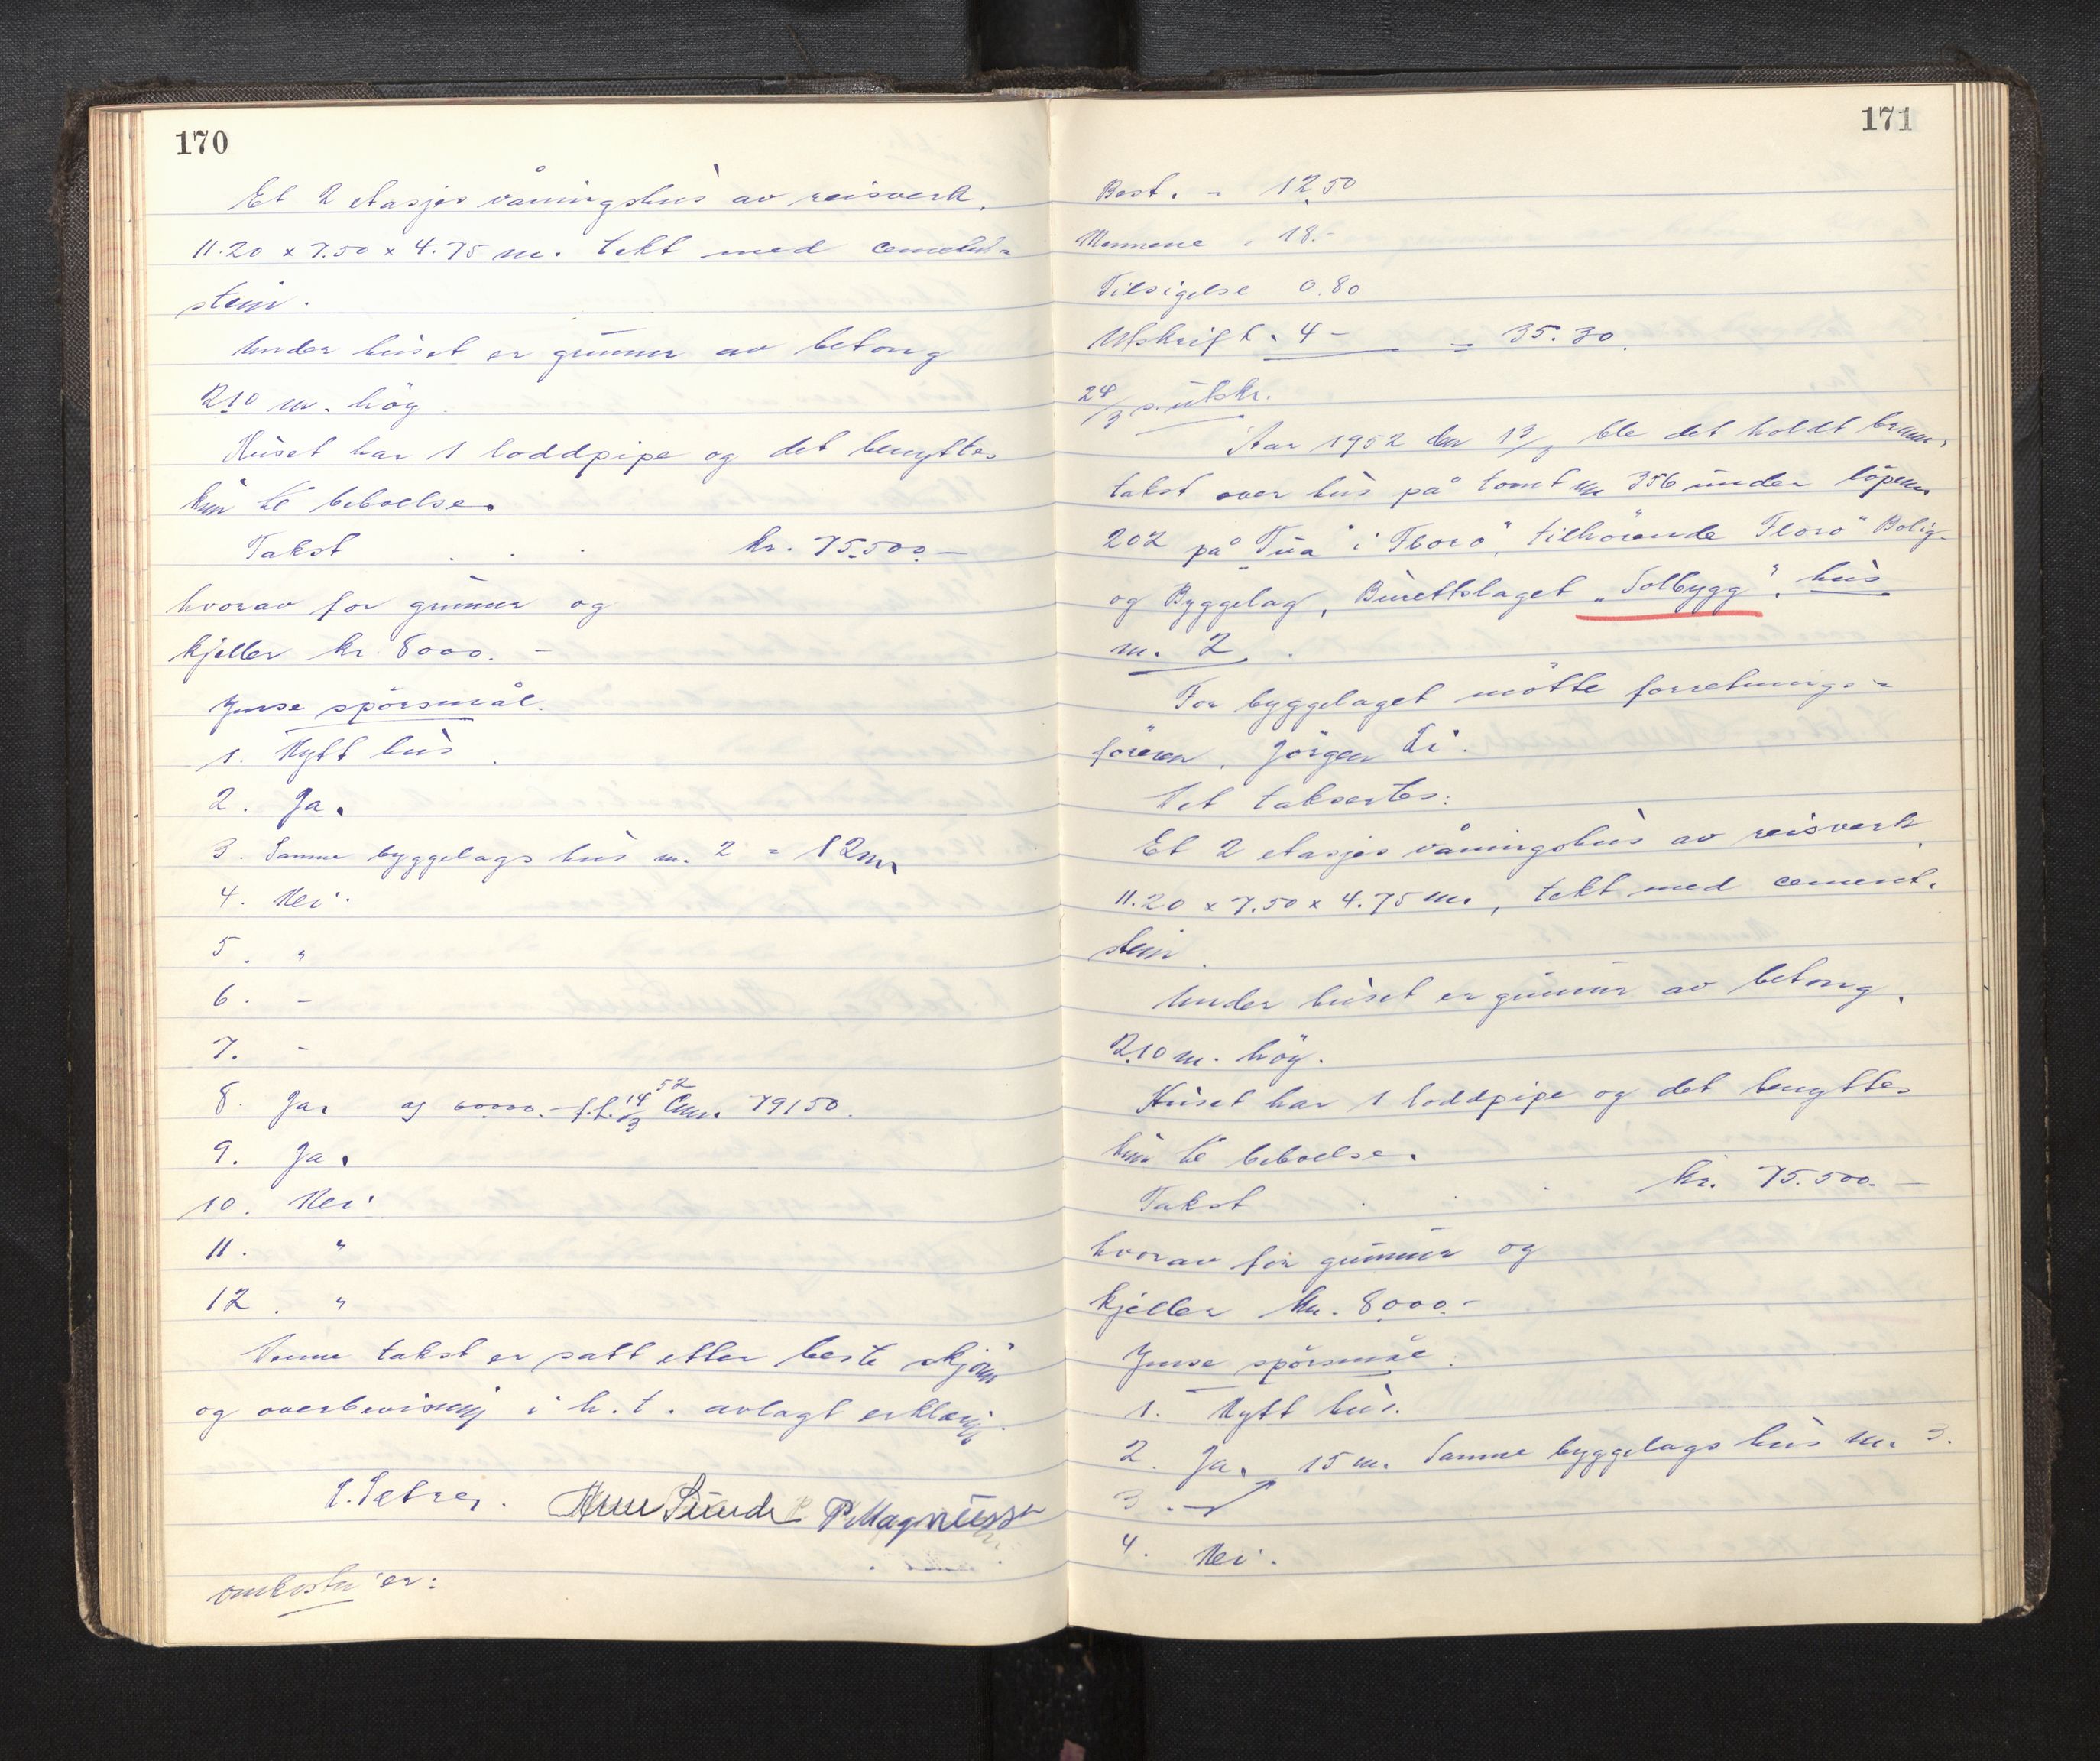 170
Et 2 etasjes våningshus av reisverk.
11.20 x 7.50 x 4.75 m. tekt med cement=
stein.
Under huset er grunnur av betong
2.10 m. hög.
Huset har 1 loddpipe og det benyttes
kun til beboelse.
Takst . . . kr. 75.500.–
hvorav for grunnur og
kjeller kr 8000.–
Ymse spörsmål.
1. Nytt hus.
2. Ja.
3. Samme byggelags hus nr. 2 = 12m.
4. Nei.
5. "
6. -
7. -
8. Ja.
52
14/3 79150.
9. Ja.
10. Nei
11. "
12. "
Denne takst er satt etter beste skjönn
og overbevisning i h.t. avlagt erklæring.
P. Magnussen
Omkostn. er:
171
Best. - 12.50
Mennene " 18.-
Tilsigelse 0.80
Utskrift " 4 – = 35.30.
utskr.
Aar 1952 den ble det holdt brann=
takst over hus på tomt nr 356 under löpenr
202 på "Tua" i Florö, tilhörende Florö Bolig-
og Byggelag, Burettslaget "Solbygg", hus
nr. 2.
For byggelaget mötte forretnings=
föreren, Jörgen Li.
Det taksertes:
Et 2 etasjes våningshus av reisverk,
11.20 x 7.50 x 4.75 m., tekt med cement.
stein.
Under huset er grunnur av betong,
2.10 m. hög.
Huset har 1 loddpipe og det benyttes
kun til beboelse.
Takst . . . kr. 75.500.–
hvorav for grunnur og
kjeller kr. 8000.-
Ymse spörsmål:
1. Nytt hus.
2. Ja. 15 m. Samme byggelags hus nr. 3.
3.
4. Nei.